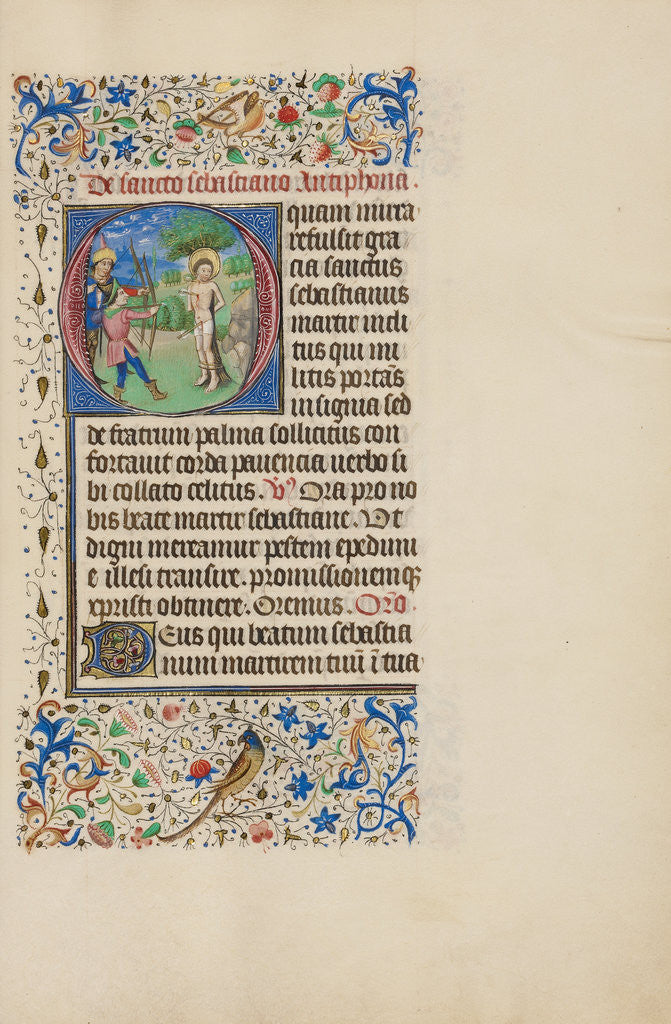 De sancto sebastiano Antiphona.
O quam mira
refulsit gra
cia sanctus
sebastianus
martir incli
tus qui mi
litis portās
insignia sed
de fratrum palma sollicitus con
fortauit corda pauencia uerbo si
bi collato celitus. V̄ Ora pro no
bis beate martir sebastiane. Vt
digni mereamur pestem epedimi
e illesi transire. promissionem q̄
xpristi obtinere. Oremus. Orō.
Deus qui beatum sebastia
num martirem tuū ī tua